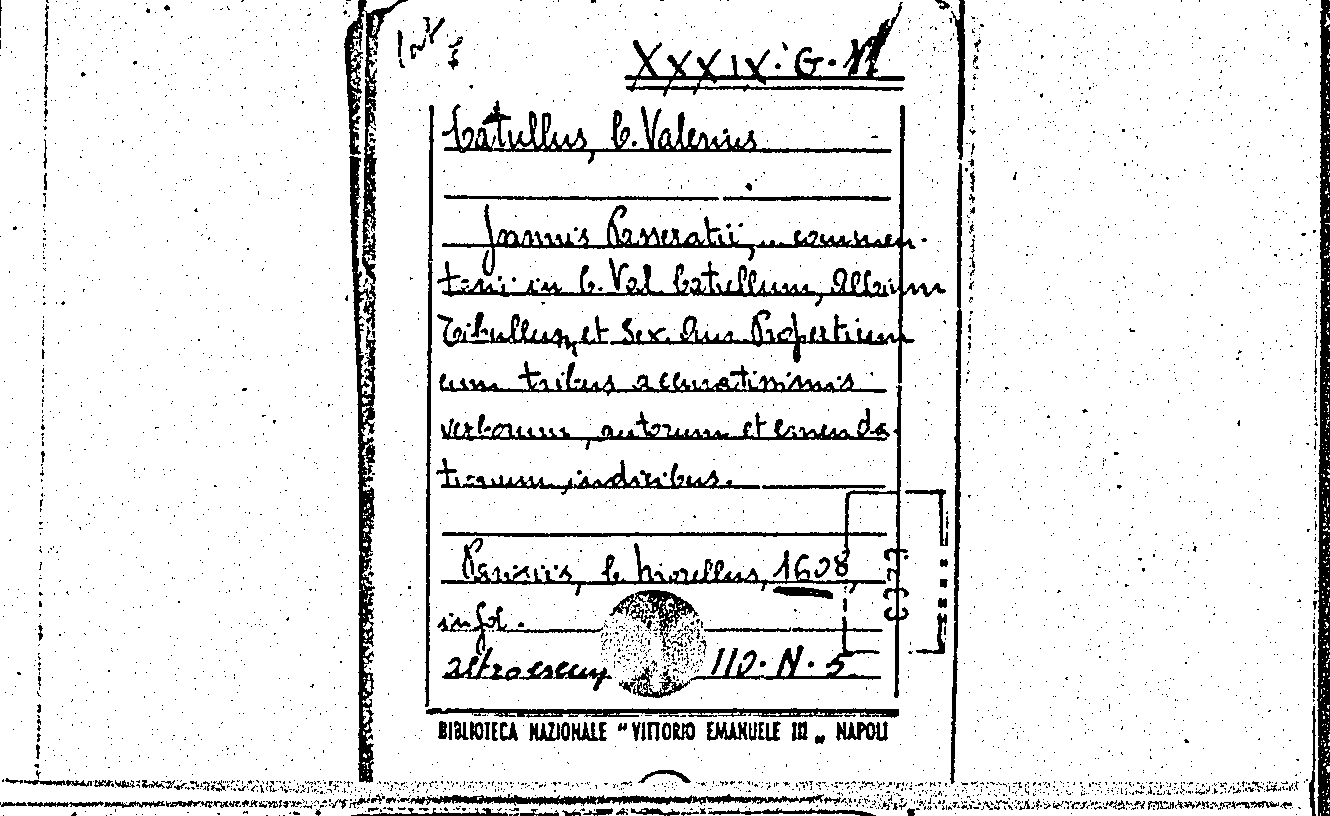 Int
XXXIX. G.
Catullus, C. Valerius
Joannis Passeratii, ... commen-
tarii in C. Val. Catullum, Albium
Tibullum, et Sex. Aur. Propertium
cum tribus accuratissimis
verborum, autorum et emenda-
tionum, indicibus.
Parisiis, C. Morellus, 1608,
in fol.
altro esemp 110. N. 5.
BIBLIOTECA NAZIONALE "VITTORIO EMANUELE III„ NAPOLI